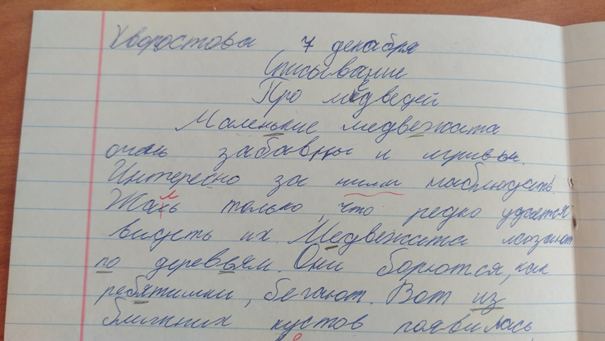 Хворостова 7 декабря
Списывание
Про медведей
Маленькие медвежата
очень забавны и игривы.
Интересно за ними наблюдать.
Жаль только, что редко удаётся
видеть их. Медвежата лазают
по деревьям. Они борются, как
ребятишки, бегают. Вот из
ближних кустов появилась